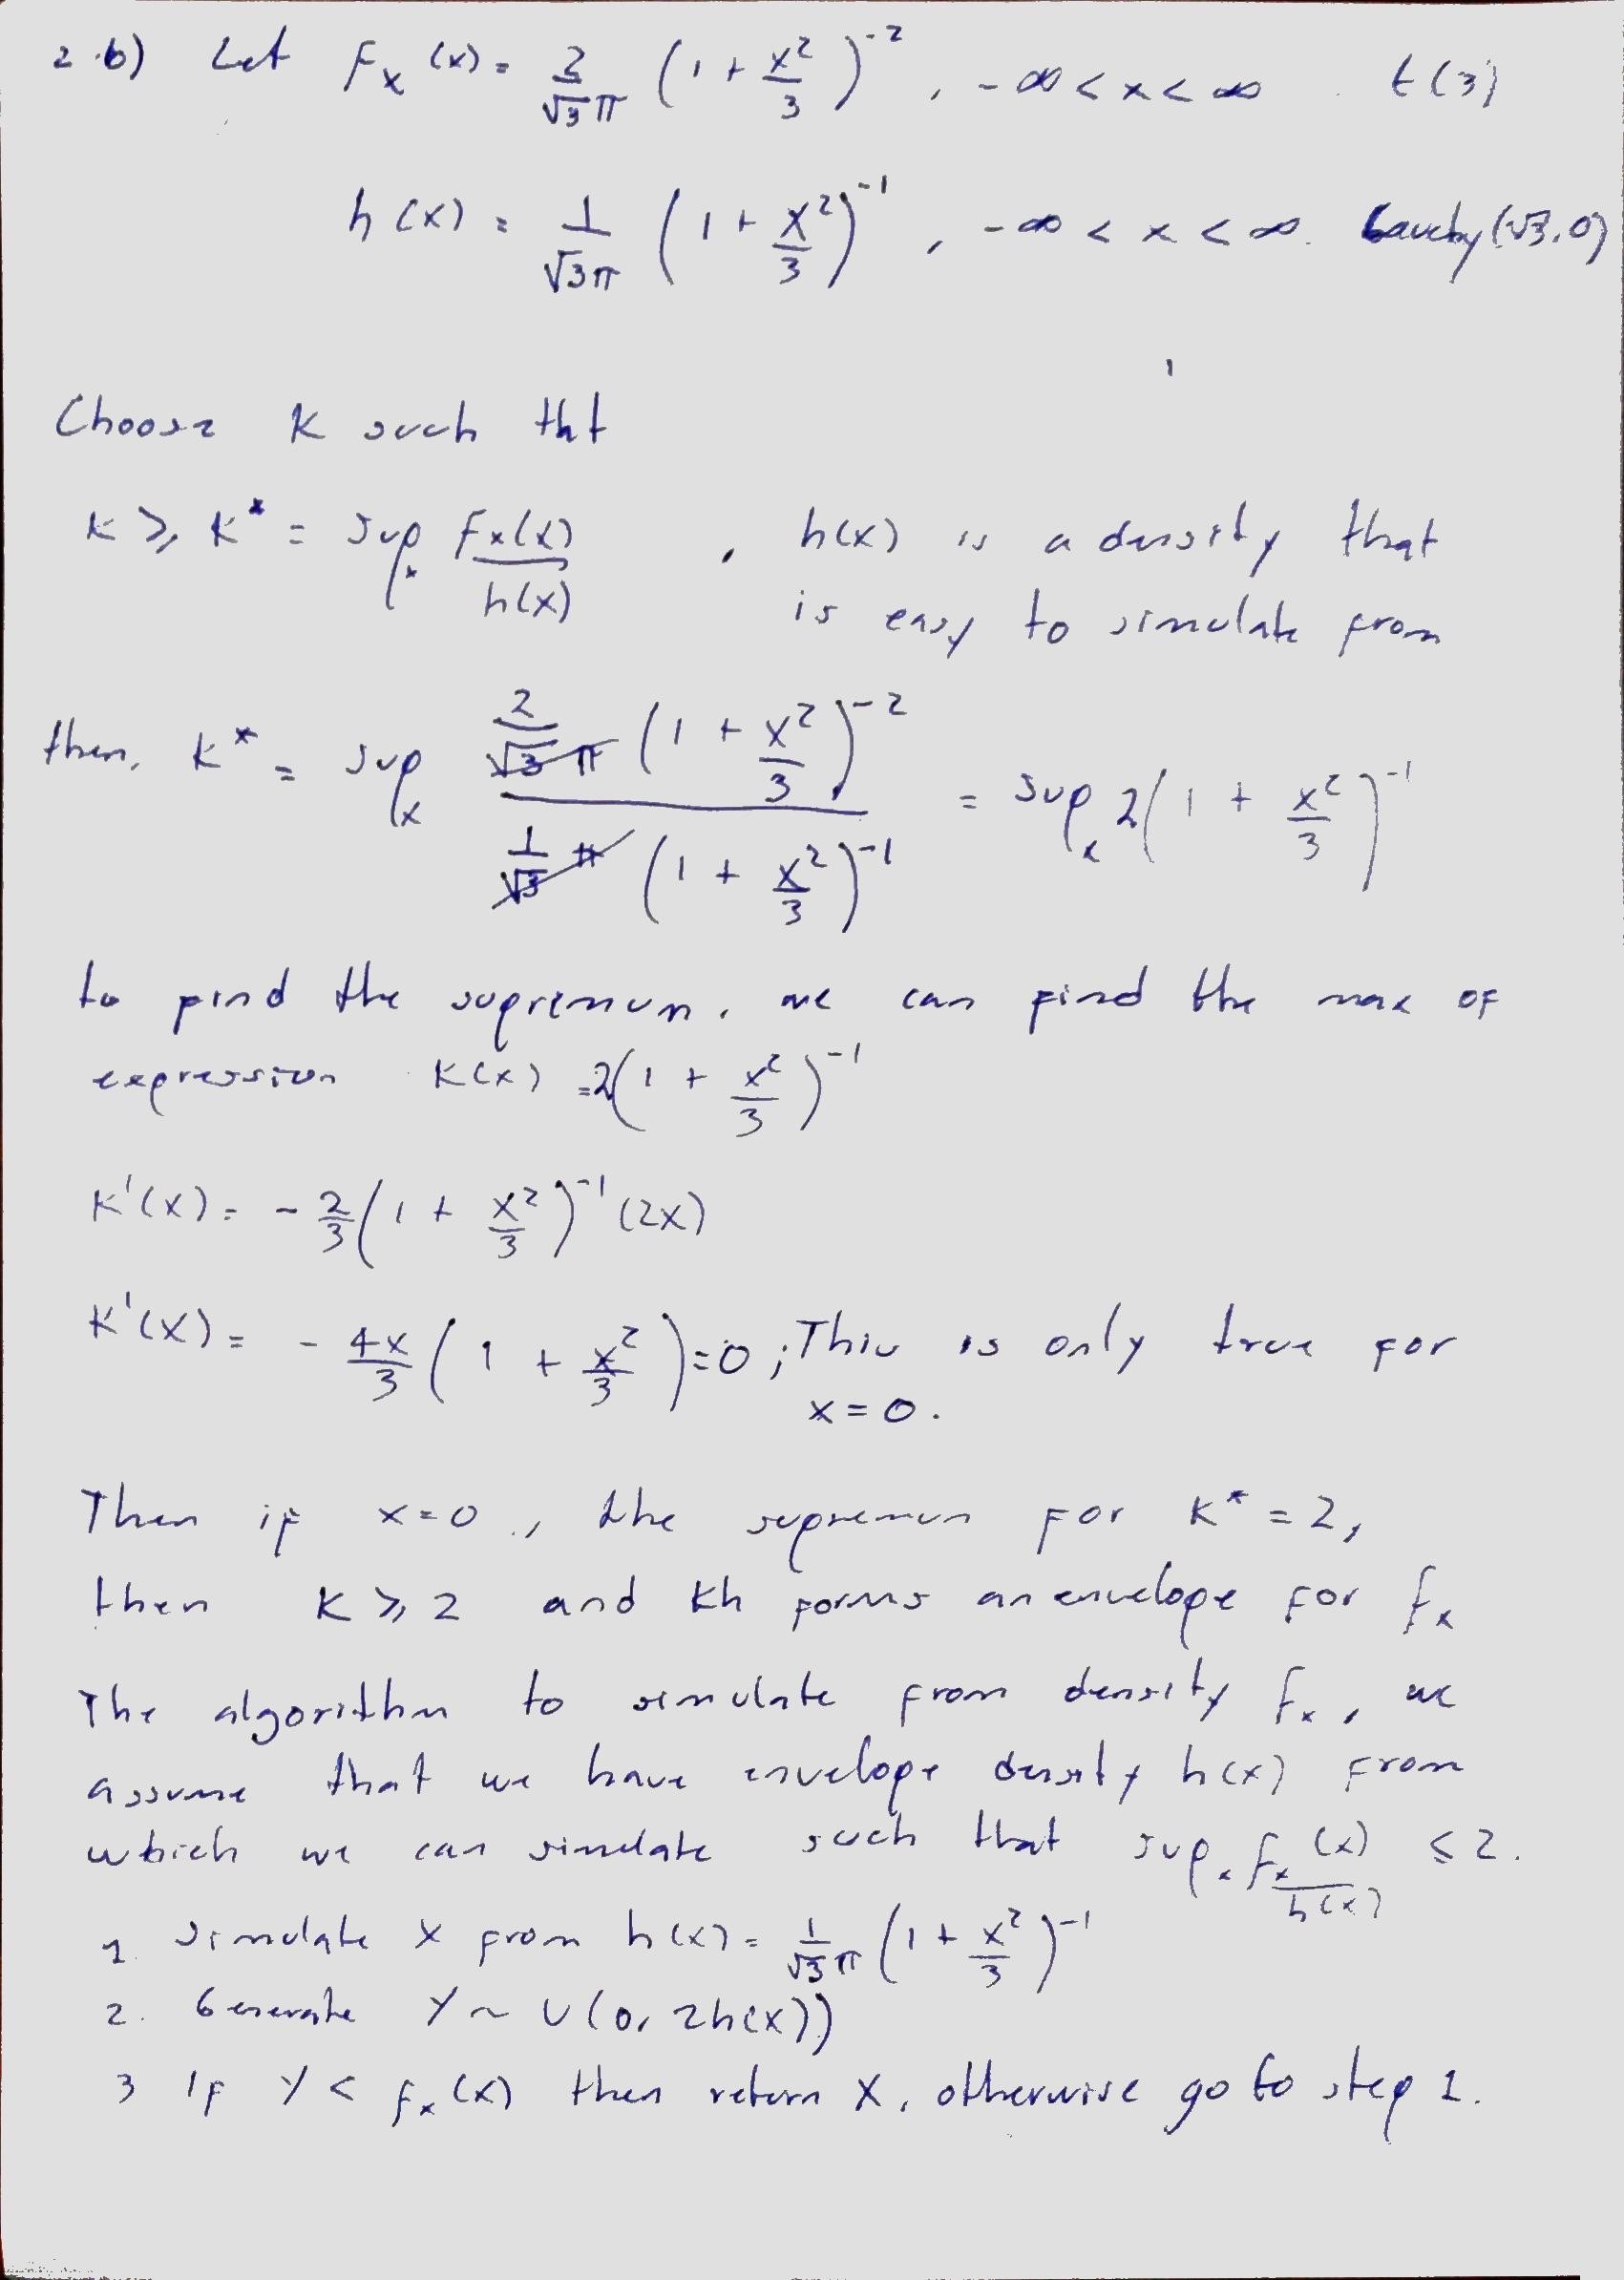 2.b) Let fx(x) = 2/(√3π) (1 + x²/3)^-2, -∞ < x < ∞. t(3)
h(x) = 1/(√3π) (1 + x²/3)^-1, -∞ < x < ∞. Cauchy(√3,0)
Choose K such tht
K ≥ K* = sup_x fx(x)/h(x), h(x) is a density that
is easy to simulate from
then, K* = sup_x [2/(√3π) (1 + x²/3)^-2] / [1/(√3π) (1 + x²/3)^-1] = sup_x 2(1 + x²/3)^-1
to find the supremum, we can find the max of
expression K(x) = 2(1 + x²/3)^-1
K'(x) = -2/3 (1 + x²/3)^-1 (2x)
K'(x) = -4x/3 (1 + x²/3) = 0; This is only true for
x = 0.
Then if x = 0, the supremum for K* = 2,
then K ≥ 2 and Kh forms an envelope for fx
The algorithm to simulate from density fx, we
assume that we have envelope density h(x) from
which we can simulate such that sup_x fx(x)/h(x) ≤ 2.
1. Simulate X from h(x) = 1/(√3π) (1 + x²/3)^-1
2. Generate Y ~ U(0, 2h(x))
3 If Y < fx(x) then return X, otherwise go to step 1.